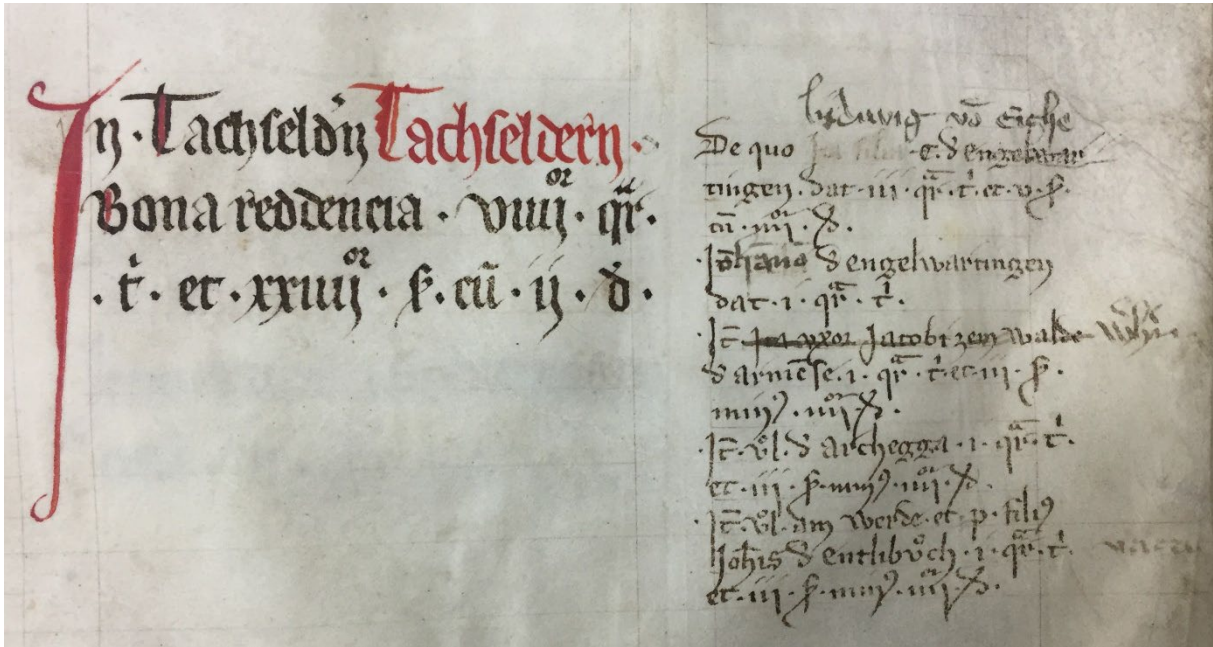 In · Tachseldn Tachseldern ·
Bona reddencia · viiij^or · qr̄ ·
· t̓ · et · xxiiij^or · ẜ · cū · ij · đ ·
lvdwig vō Eiche
De quo e · đ engelwar
tingen · dat · iii · qr̄ · t̓ · et · v · ẜ ·
cū · iiij^or · đ ·
· Joh̄ano đ engelwartingen
dat · i · qr̄ · t̓ ·
· It̄ Jta vxor Jacobi zem walde
đ arniēse · i · qr̄ · t̓ · et · iii · ẜ ·
minꝰ · iiij^or · đ ·
· It̄ · vͦl · đ archegga · i · qr̄ · t̓ ·
et · iii · ẜ · minꝰ · iiij^or · đ ·
· It̄ · vͦl · am werde · et · p · filiꝰ
Joh̄is đ entlibvͦch · i · qr̄ · t̓ ·
et · iii · ẜ · minꝰ · iiij^or · đ ·